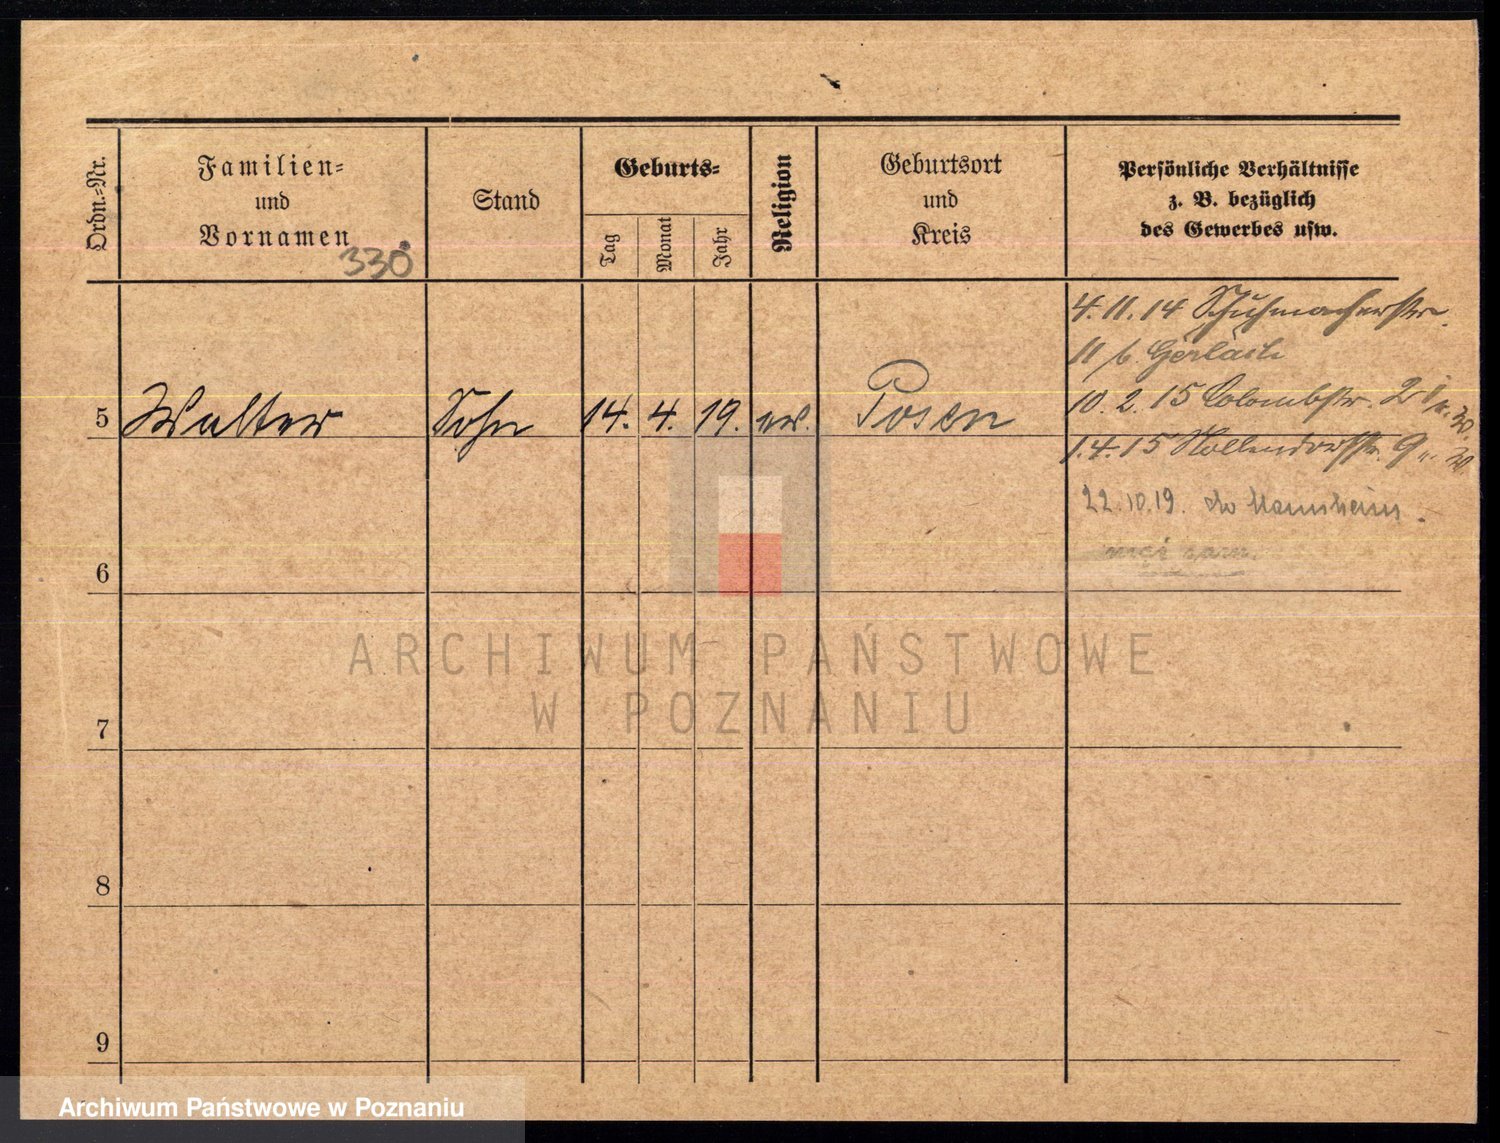 Ordn.=Nr.
Familien=
und
Vornamen
330
Stand
Geburts=
Tag
Monat
Jahr
Religion
Geburtsort
und
Kreis
Persönliche Verhältnisse
z. B. bezüglich
des Gewerbes usw.
4.11.14 Schuhmacherstr.
11 b. Gerlach
10. 2. 15 Colombstr.
5 Walter Sohn 14. 4. 19. ev. Posen
1.4.15 Nollendorfstr. 9
22.10.19. do Mannheim.
6
7
8
9
ARCHIWUM PAŃSTWOWE
W POZNANIU
Archiwum Państwowe w Poznaniu